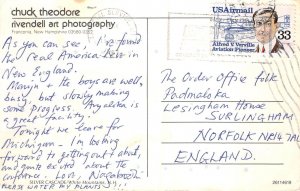 chuck theodore
rivendell art photography
Francestown, New Hampshire 03043
As you can see, I've found
the real America here in
New England.
Manjn + the boys are well,
busy, but slowly making
some progress. Aryaloka is
a great facility.
Tonight we leave for
Michigan – I'm looking
forward to getting out about,
and quite excited about the
conference. Love, Nagabodhi
PLEASE WATER MY PLANTS
SILVER CASCADE, White Mountains, N.H.
USAirmail
33
Alfred V. Verville
Aviation Pioneer
The Order Office folk
Padmaloka
Lesingham House
SURLINGHAM
NORFOLK NR14 7AL
ENGLAND.
26114619